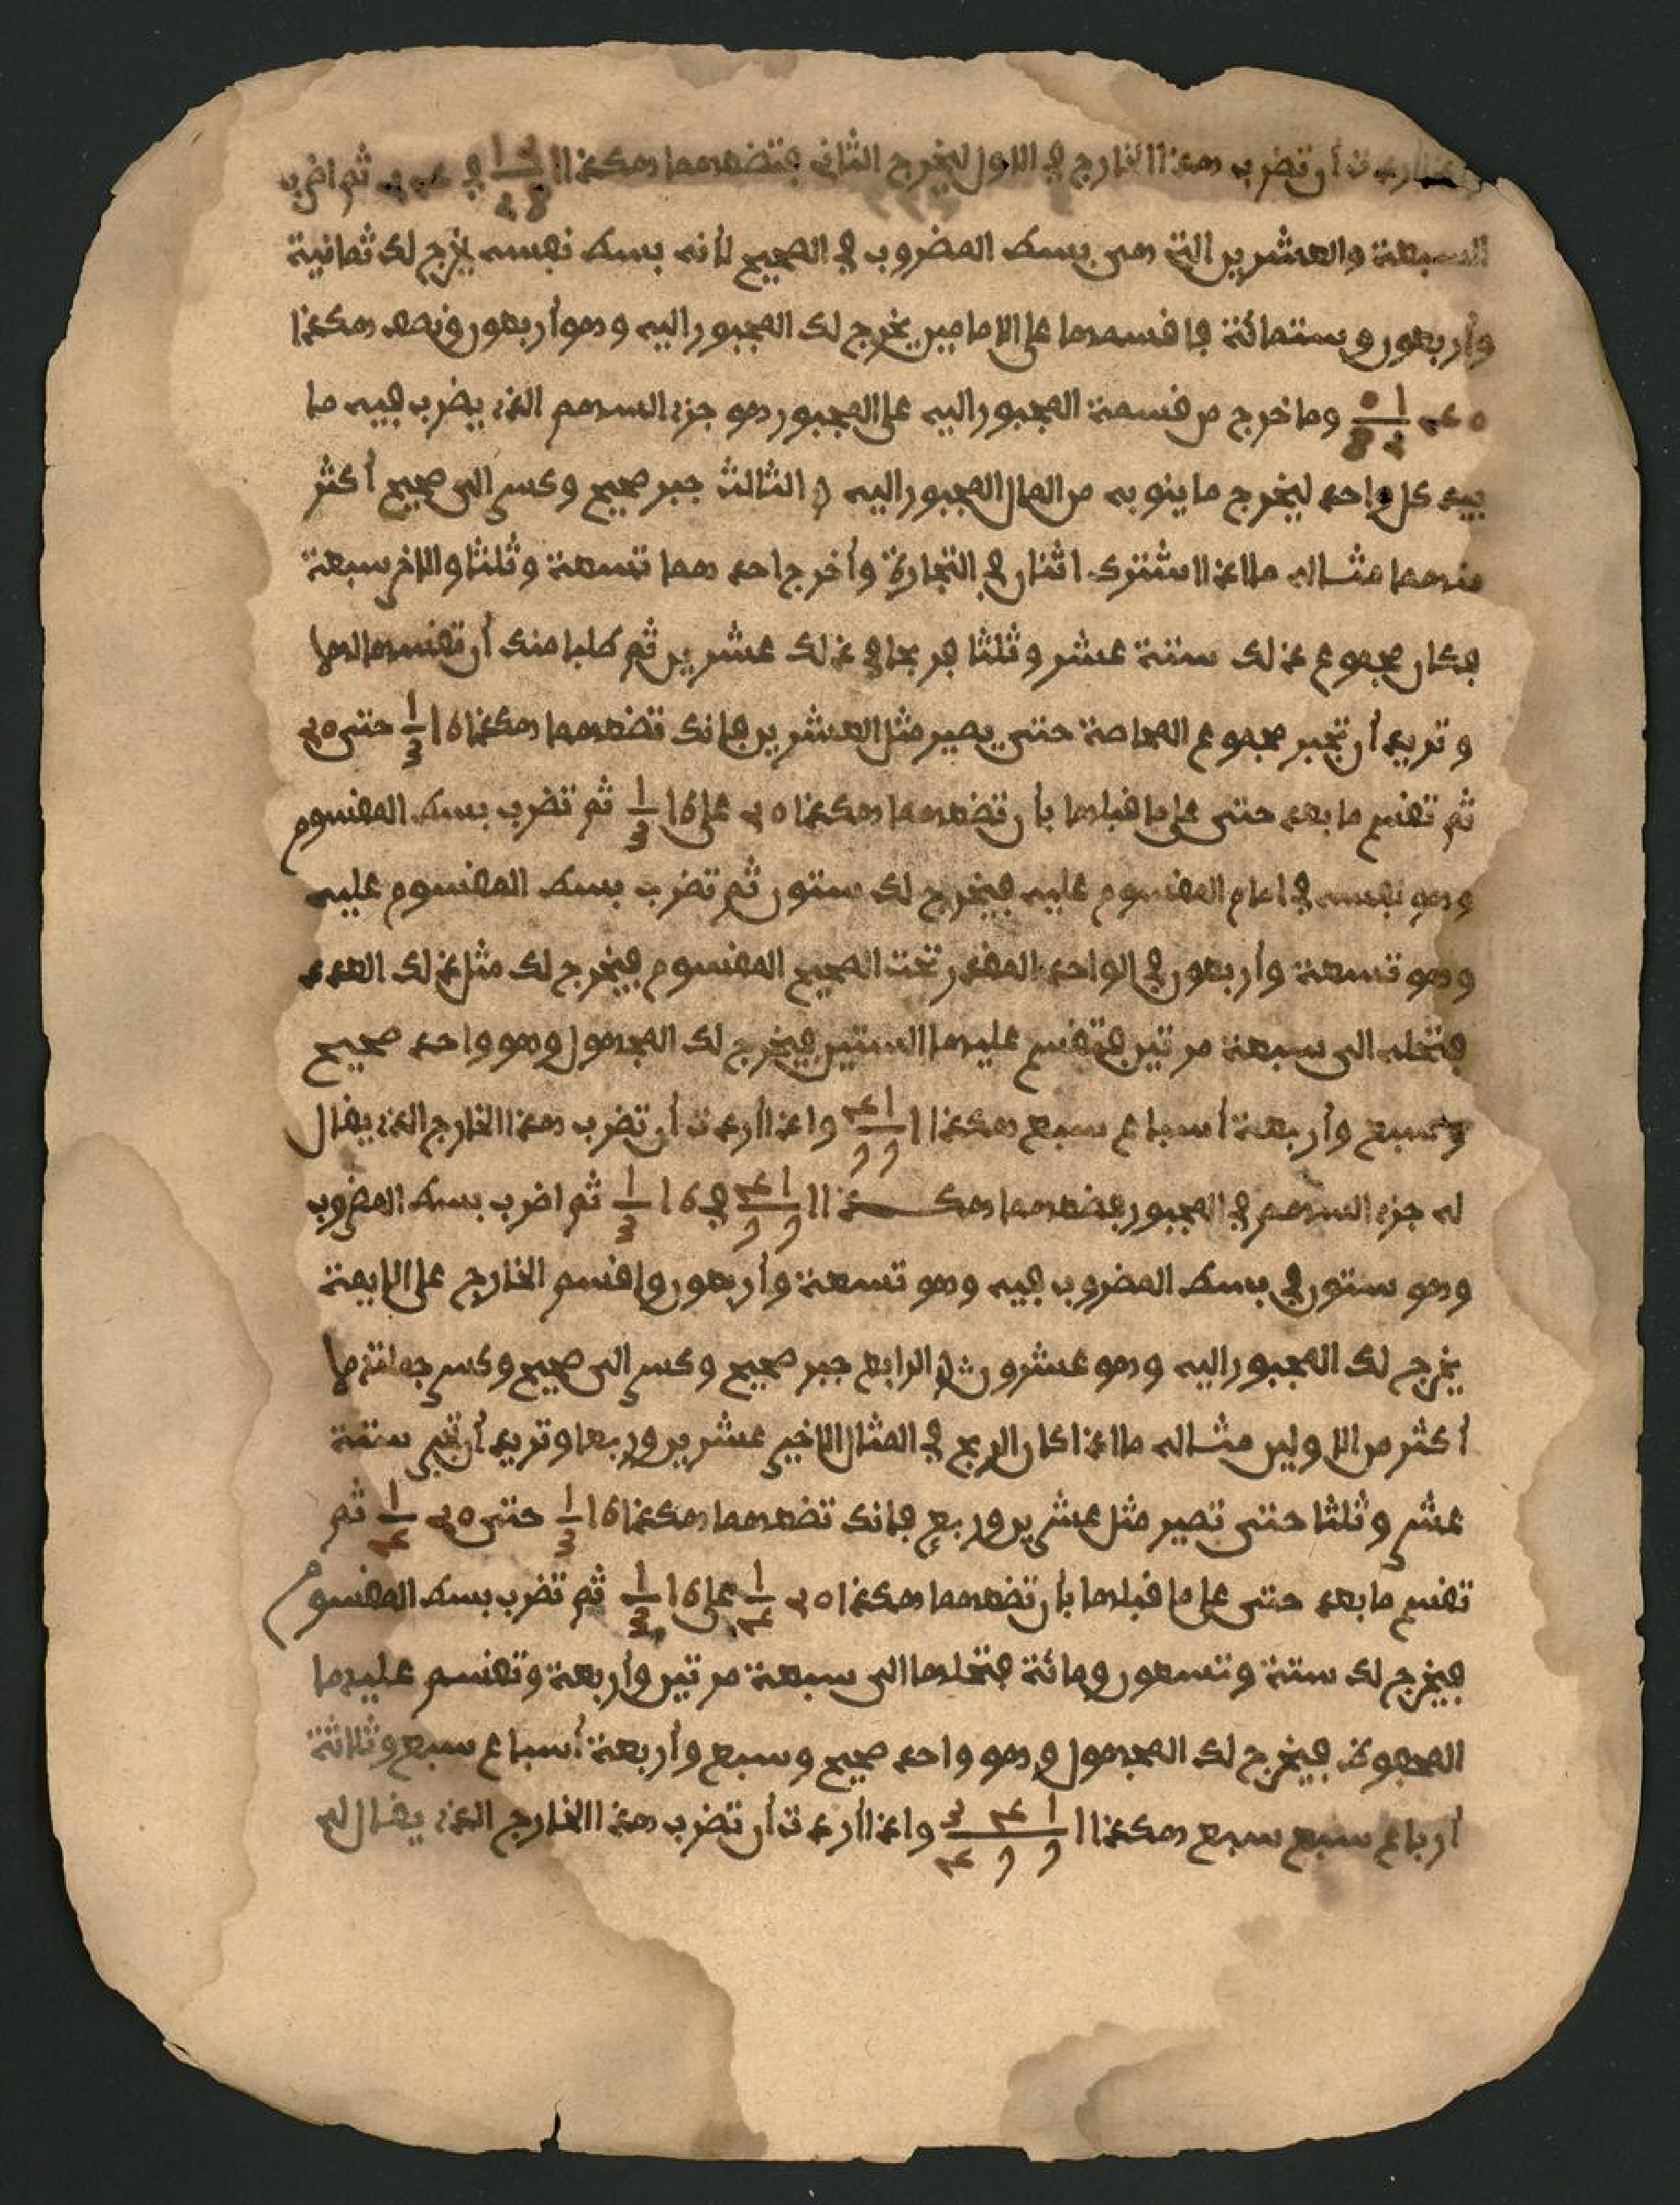 أردت أن تضرب هذا الخارج في الاول ليخرج الثاني فتضعهما هكذا ثم اضرب
السبعة والعشرين التي هي بسط المضروب في الصحيح لأنه بسط نفسه يخرج لك ثمانية
وأربعون وستمائة فاقسمها على الامامين يخرج لك المجبور اليه وهو أربعون ونصف هكذا
وما خرج من قسمة المجبور اليه على المجبور هو جزء السهم الذي يضرب فيه ما
بيد كل واحد ليخرج ما ينوبه من المال المجبور اليه الثالث جبر صحيح وكسر الى صحيح أكثر
منهما مثاله ما اذا اشترك اثنان في التجارة وأخرج احدهما تسعة وثلثا والاخر سبعة
فكان مجموع ذلك ستة عشر وثلثا فربحا في ذلك عشرين ثم طلبا منك أن تقسمها لهما
وتريد أن تجبر مجموع المحاصة حتى يصير مثل العشرين فإنك تضعهما هكذا 16 1/3 حتى 20
ثم تقسم ما بعد حتى على ما قبلها بأن تضعهما هكذا 20 على 16 1/3 ثم تضرب بسط المقسوم
وهو نفسه في امام المقسوم عليه فيخرج لك ستون ثم تضرب بسط المقسوم عليه
وهو تسعة وأربعون في الواحد المقدر تحت الصحيح المقسوم فيخرج لك مثل ذلك العدد
فتحله الى سبعة مرتين فتقسم عليهما الستين فيخرج لك المجهول وهو واحد صحيح
وسبع وأربعة أسباع سبع هكذا 1 1 4/7 7 واذا أردت أن تضرب هذا الخارج الذي يقال
له جزء السهم في المجبور فضعهما هكــذا 1 1 4/7 7 في 16 1/3 ثم اضرب بسط المضروب
وهو ستون في بسط المضروب فيه وهو تسعة وأربعون واقسم الخارج على الايمة
يخرج لك المجبور اليه وهو عشرون الرابع جبر صحيح وكسر الى صحيح وكسر جملتهما
أكثر من الاولين مثاله ما اذا كان الربح في المثال الاخير عشرين وربعا وتريد أن تجبر ستة
عشر وثلثا حتى تصير مثل عشرين وربع فإنك تضعهما هكذا 16 1/3 حتى 20 1/4 ثم
تقسم ما بعد حتى على ما قبلها بأن تضعهما هكذا 20 1/4 على 16 1/3 ثم تضرب بسط المقسوم
فيخرج لك ستة وتسعون ومائة فتحلها الى سبعة مرتين وأربعة وتقسم عليها
المحفوظ فيخرج لك المجهول وهو واحد صحيح وسبع وأربعة أسباع سبع وثلاثة
أرباع سبع سبع هكذا 1 1 4 3/7 7 4 واذا أردت أن تضرب هذا الخارج الذي يقال له